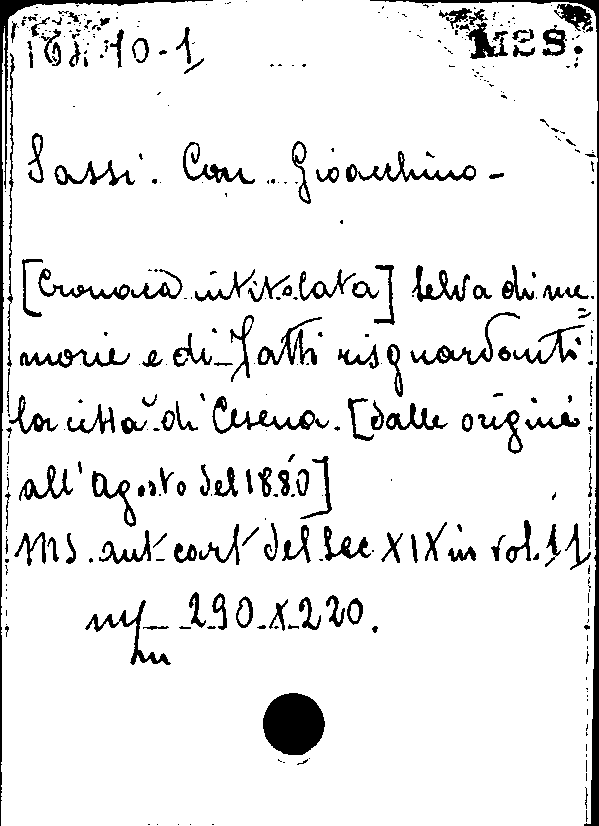 164.70-1 MSS.
Sassi. Con. Gioacchino-
[Cronaca intitolata] Selva di me=
morie e di Fatti risguardanti
la città di Cesena. [dalle origini
all'Agosto del 1880]
MS. aut. cart. del Sec XIX in vol. 11
290 X 220.